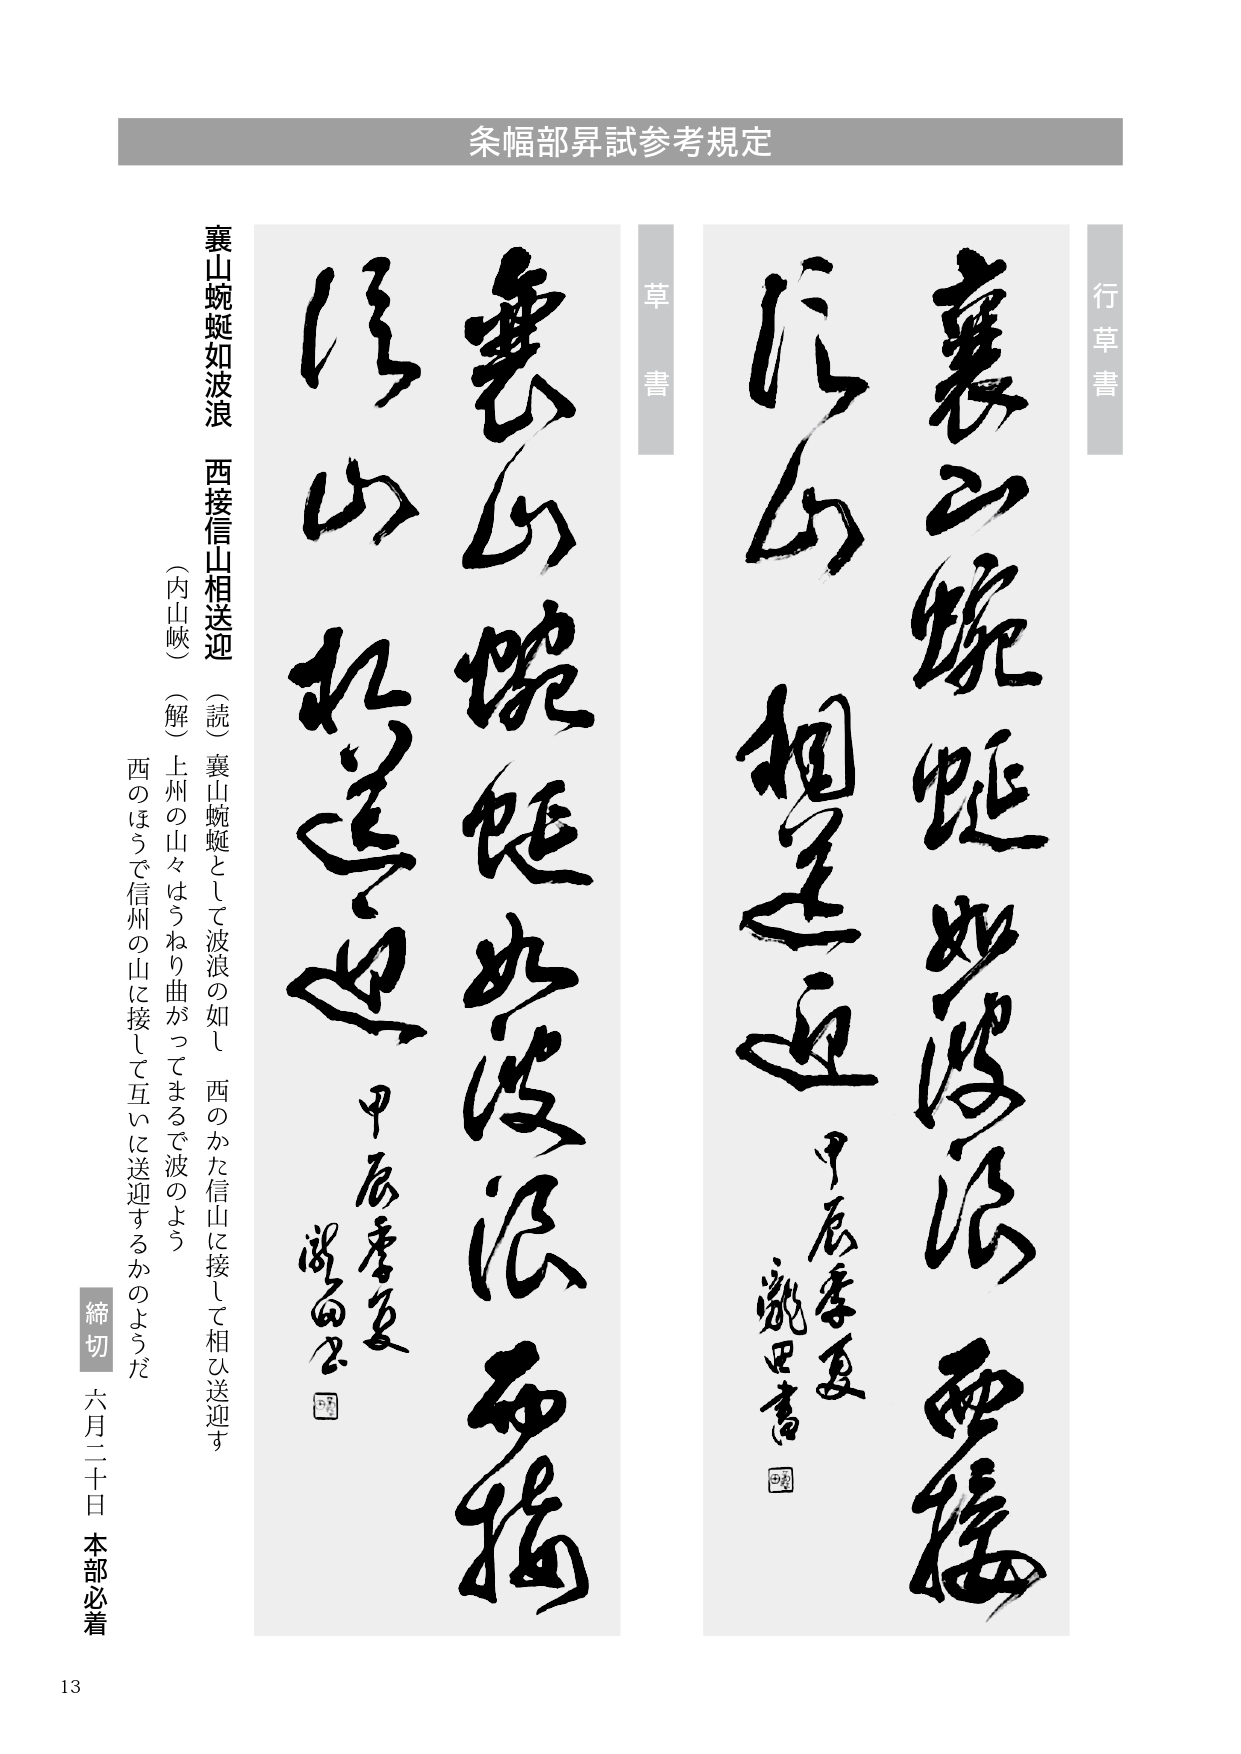 条幅部昇試参考規定
行草書
襄山蜿蜒如波浪 西接
信山 相送迎
甲辰季夏
瀧田書
草書
襄山蜿蜒如波浪 西接
信山 相送迎
甲辰季夏
瀧田書
襄山蜿蜒如波浪 西接信山相送迎
(読) 襄山蜿蜒として波浪の如し 西のかた信山に接して相ひ送迎す
(内山峡)
(解) 上州の山々はうねり曲がってまるで波のよう
西のほうで信州の山に接して互いに送迎するかのようだ
締切 六月二十日 本部必着
13